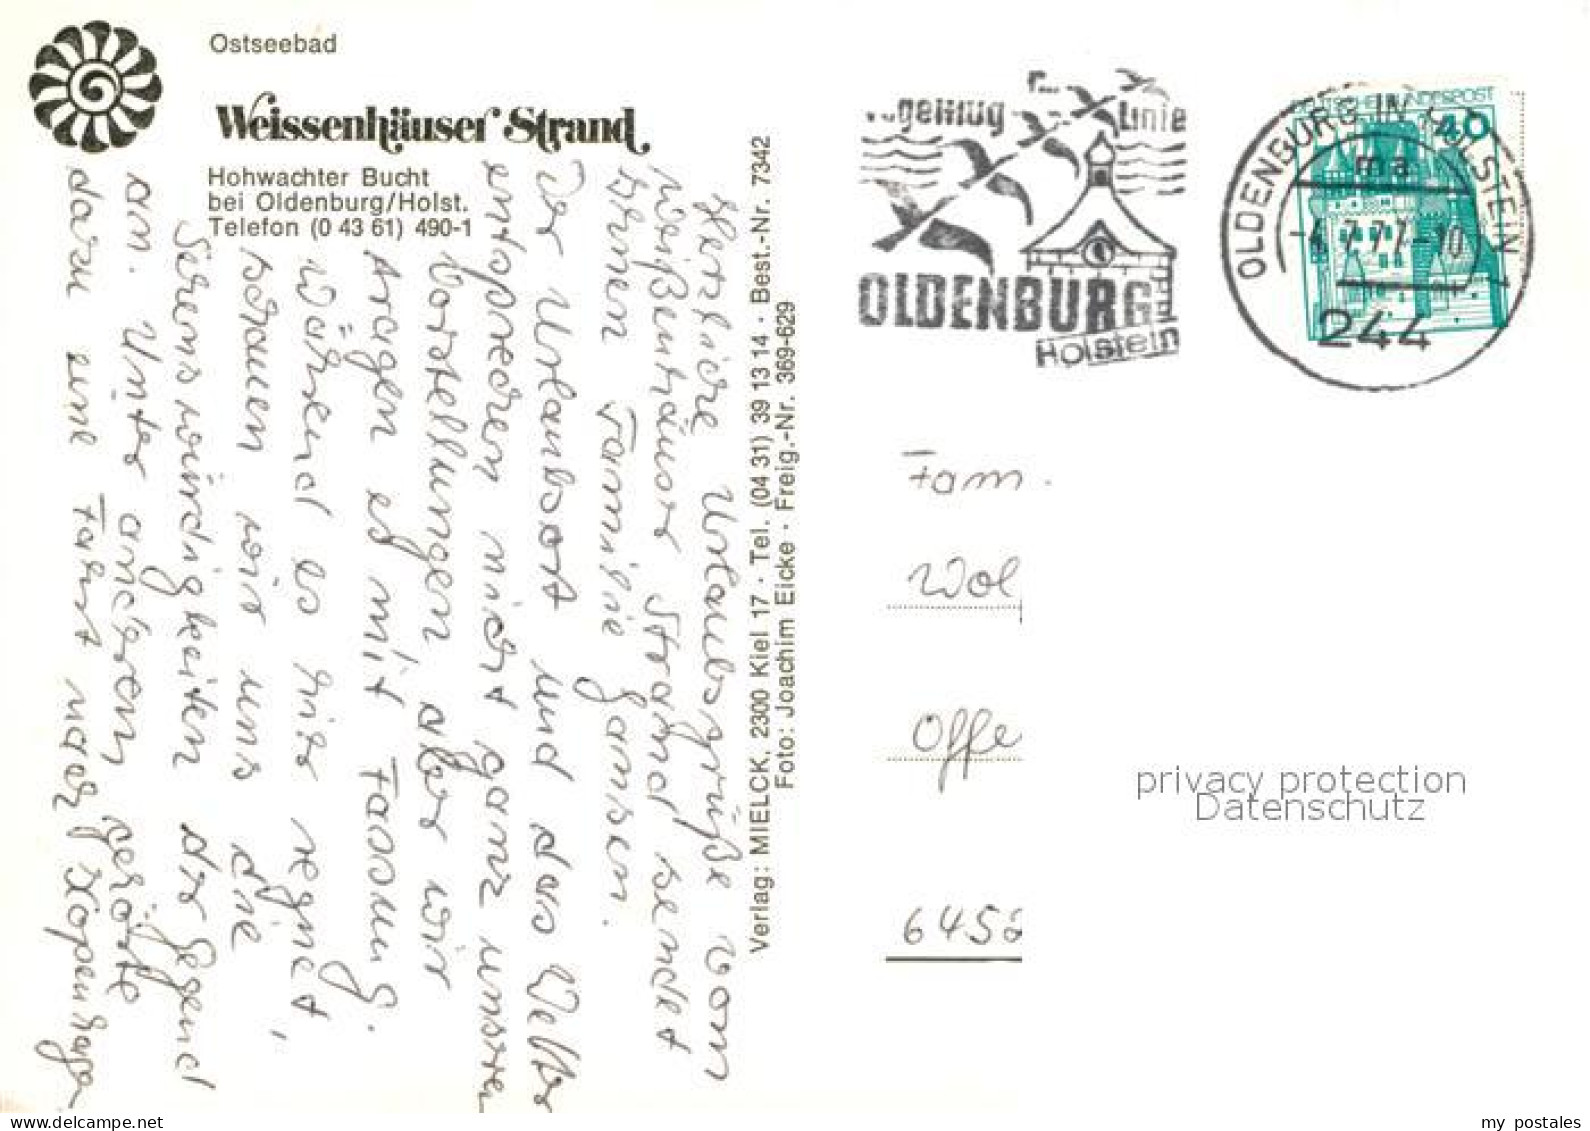 Ostseebad
Weissenhäuser Strand
Hohwachter Bucht
bei Oldenburg/Holst.
Telefon (0 43 61) 490-1
Herzliche Urlaubsgrüße vom
Weißenhäuser Strand sendet
Famisie Gansen.
Der Urlaubsort und das Wetter
entsprechen nicht ganz unseren
Vorstellungen aber wir
tragen es mit Fassung.
Während es hier regnet,
schauen wir uns die
Sehenswürdigkeiten der Gegend
an. Unter anderem gehörte
dazu eine Fahrt nach Kopenhagen
Verlag: MIELCK, 2300 Kiel 17 · Tel. (04 31) 39 13 14 · Best.-Nr. 7342
Foto: Joachim Eicke · Freig.-Nr. 369-629
gelflug
Linie
OLDENBURG
Holstein
DEUTSCHE BUNDESPOST
40
OLDENBURG IN HOLSTEIN 1
ma
-4.7.77-10
244
Fam.
Wol
Offe
645
privacy protection
Datenschutz
my postales